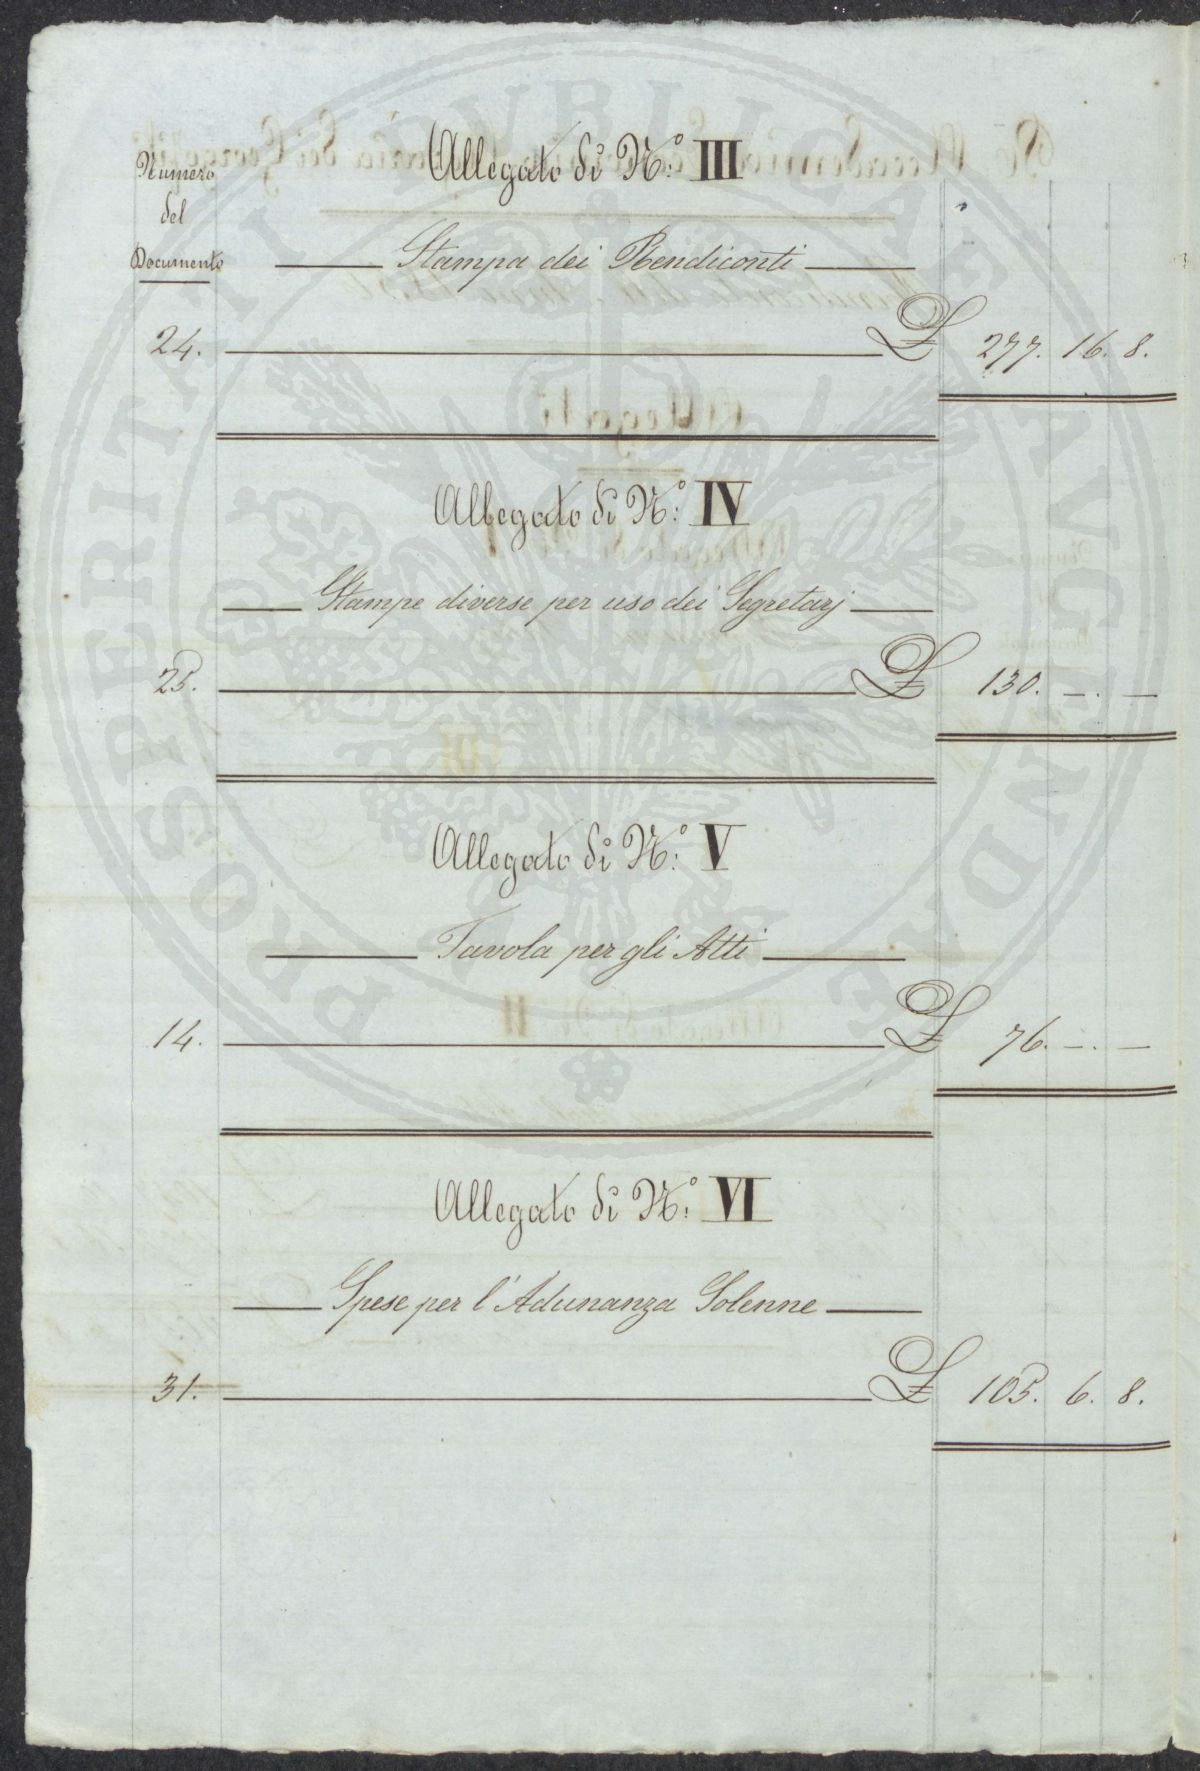 Numero
del
Documento
Allegato di N.º III
Stampa dei Rendiconti
24. £ 277. 16. 8.
Allegato di N.º IV
Stampe diverse per uso dei Segretarj
25. £ 130. –. –
Allegato di N.º V
Tavola per gli Atti
14. £ 76. –. –
Allegato di N.º VI
Spese per l'Adunanza Solenne
31. £ 105. 6. 8.
PROSPERITATI PUBLICAE AUGENDAE